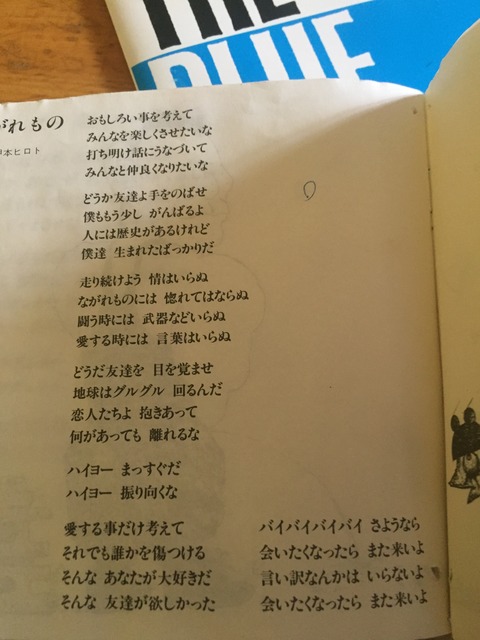 THE
BLUE
がれもの
本ヒロト
おもしろい事を考えて
みんなを楽しくさせたいな
打ち明け話にうなづいて
みんなと仲良くなりたいな
どうか友達よ手をのばせ
僕ももう少し がんばるよ
人には歴史があるけれど
僕達 生まれたばっかりだ
走り続けよう 情はいらぬ
ながれものには 惚れてはならぬ
闘う時には 武器などいらぬ
愛する時には 言葉はいらぬ
どうだ友達を 目を覚ませ
地球はグルグル 回るんだ
恋人たちよ 抱きあって
何があっても 離れるな
ハイヨー まっすぐだ
ハイヨー 振り向くな
愛する事だけ考えて
それでも誰かを傷つける
そんな あなたが大好きだ
そんな 友達が欲しかった
バイバイバイバイ さようなら
会いたくなったら また来いよ
言い訳なんかは いらないよ
会いたくなったら また来いよ